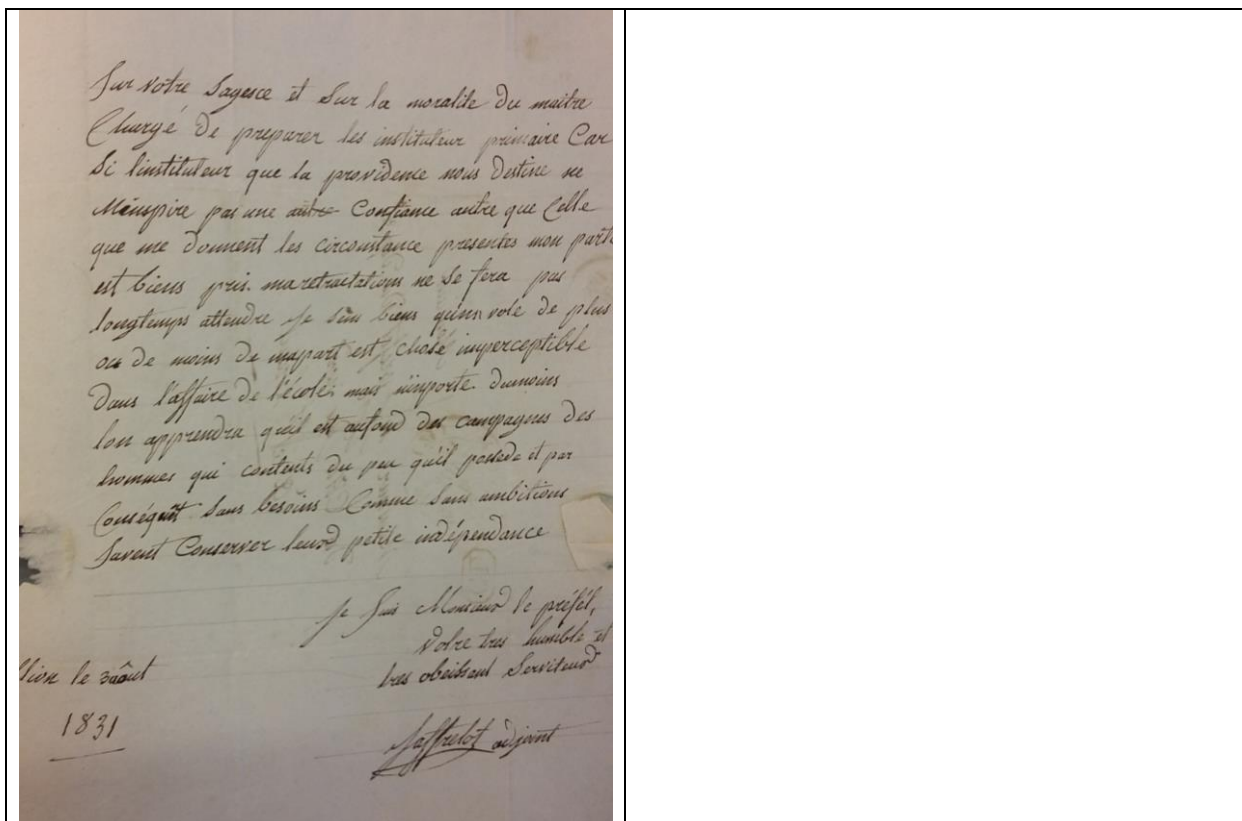 Sur votre Sagesce et Sur la moralite du maitre
Chargé de preparer les instituteur primaire Car
Si l'instituteur que la providence nous destine ne
M'enspire pas une autre Confiance autre que Celle
que me donnent les circonstance presentes mon parti
est biens pris. ma retractations ne Se fera pas
longtemps attendre je Sen biens qu'un vole de plus
ou de moins de mapart est chose imperceptible
Dans l'affaire de l'école. mais n'importe. dumoins
lon apprendra qu'il est aufond des campagnes des
hommes qui contents du peu qu'il possede et par
Conséquent Sans besoins Comme Sans ambitions
Savent Conserver leurs petite indépendance
je Suis Monsieur le préfet,
Votre tres humble et
tres obeissant Serviteur
le 3 août
1831
Jaffrelot adjoint